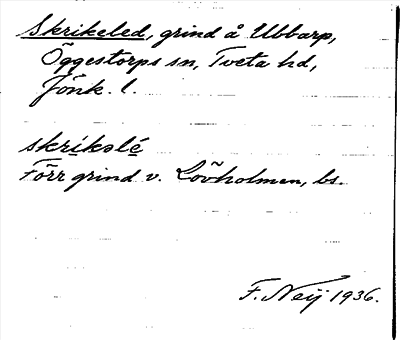 Skrikeled, grind å Ubbarp,
Öggestorps sn, Tveta hd,
Jönk. l.
skríkəlé
Förr grind v. Lövholmen, bs.
F. Neij 1936.